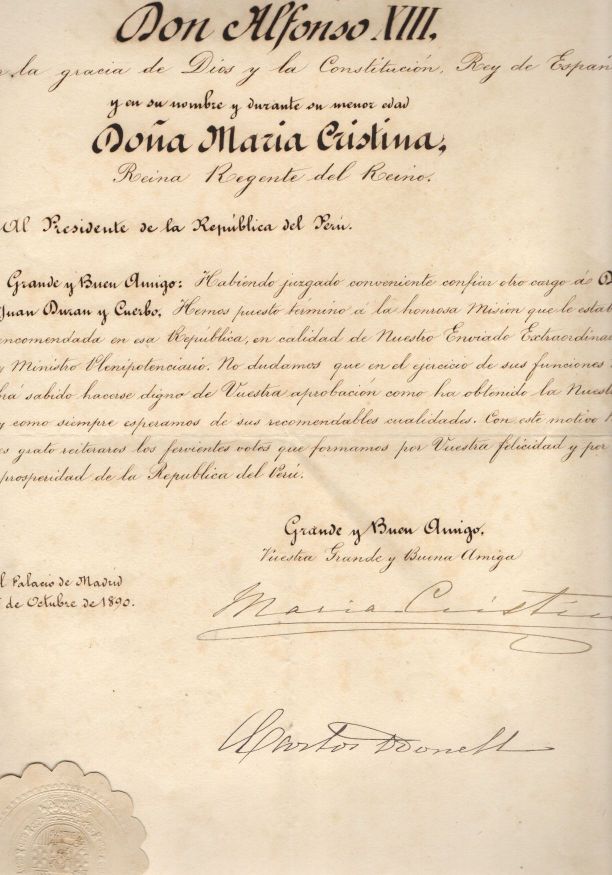 Don Alfonso XIII.
la gracia de Dios y la Constitución, Rey de Españ
y en su nombre y durante su menor edad
Doña Maria Cristina,
Reina Regente del Reino.
Al Presidente de la República del Perú.
Grande y Buen Amigo: Habiendo juzgado conveniente confiar otro cargo á D
Juan Duran y Cuerbo, Hemos puesto término á la honrosa Mision que le estab
encomendada en esa República, en calidad de Nuestro Enviado Extraordinar
y Ministro Plenipotenciario. No dudamos que en el ejercicio de sus funciones
há sabido hacerse digno de Vuestra aprobación como ha obtenido la Nuest
y como siempre esperamos de sus recomendables cualidades. Con este motivo N
es grato reiteraros los fervientes votos que formamos por Vuestra felicidad y por
prosperidad de la Republica del Perú.
Grande y Buen Amigo,
Vuestra Grande y Buena Amiga
l Palacio de Madrid
de Octubre de 1890.
Maria Cristin
Carlos O'Donell